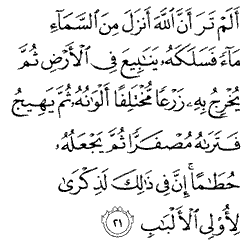 أَلَمْ تَرَ أَنَّ ٱللَّهَ أَنزَلَ مِنَ ٱلسَّمَآءِ
مَآءً فَسَلَكَهُۥ يَنَٰبِيعَ فِى ٱلْأَرْضِ ثُمَّ
يُخْرِجُ بِهِۦ زَرْعًا مُّخْتَلِفًا أَلْوَٰنُهُۥ ثُمَّ يَهِيجُ
فَتَرَىٰهُ مُصْفَرًّا ثُمَّ يَجْعَلُهُۥ
حُطَٰمًا ۚ إِنَّ فِى ذَٰلِكَ لَذِكْرَىٰ
لِأُو۟لِى ٱلْأَلْبَٰبِ ٢١